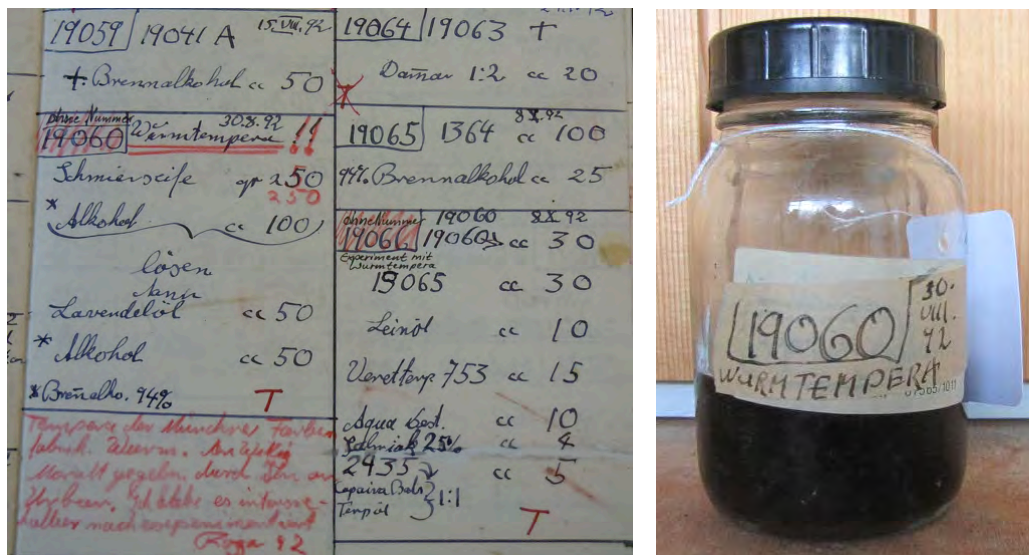 19059 19041 A 15.VIII.92
+ Brennalkohol cc 50
ohne Nummer
19060 Wurmtempera 30.8.92 !!
Schmierseife gr 250
250
* Alkohol cc 100
lösen
dann
Lavendelöl cc 50
* Alkohol cc 50
* Breñalko. 94% T
Tempera der Münchner Farben
fabrik. Wurm.
Moralt gegeben. durch Ihn an
Urban. Ich habe es interesse-
halber nachexperimentiert
92
19064 19063 +
Damar 1:2 cc 20
8.X.92
19065 1364 cc 100
94% Brennalkohol cc 25
ohne Nummer 19060 8X.92
19066 19060 cc 30
Experiment mit
Wurmtempera
19065 cc 30
Leinöl cc 10
753 cc 15
Aqua dest. cc 10
Salmiak 25% cc 4
2435 cc 5
Copaiva Bals
Terpöl 1:1
T
19060 30.
VIII.
92
WURMTEMPERA